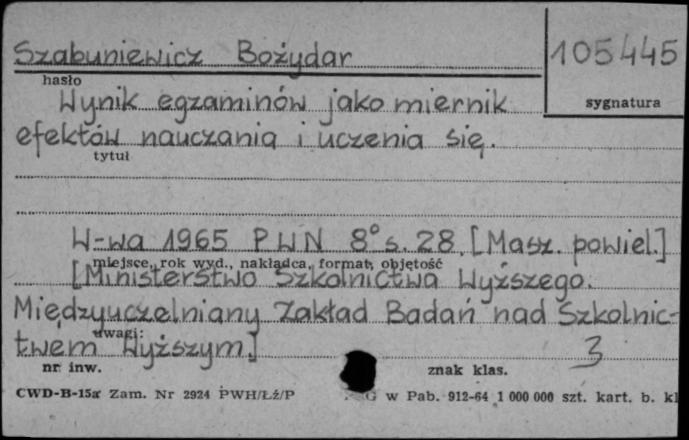 Szabuniewicz Bożydar
105445
hasło
sygnatura
Wynik egzaminów jako miernik
efektów nauczania i uczenia się.
tytuł
W-wa 1965 PWN 8° s. 28. [Masz. powiel.]
miejsce, rok wyd., nakładca, format, objętość
[Ministerstwo Szkolnictwa Wyższego.
Międzyuczelniany Zakład Badań nad Szkolnic-
uwagi:
twem Wyższym.]
3
nr inw.
znak klas.
CWD-B-15a Zam. Nr 2924 PWH/Łź/P
G w Pab. 912-64 1 000 000 szt. kart. b. kl